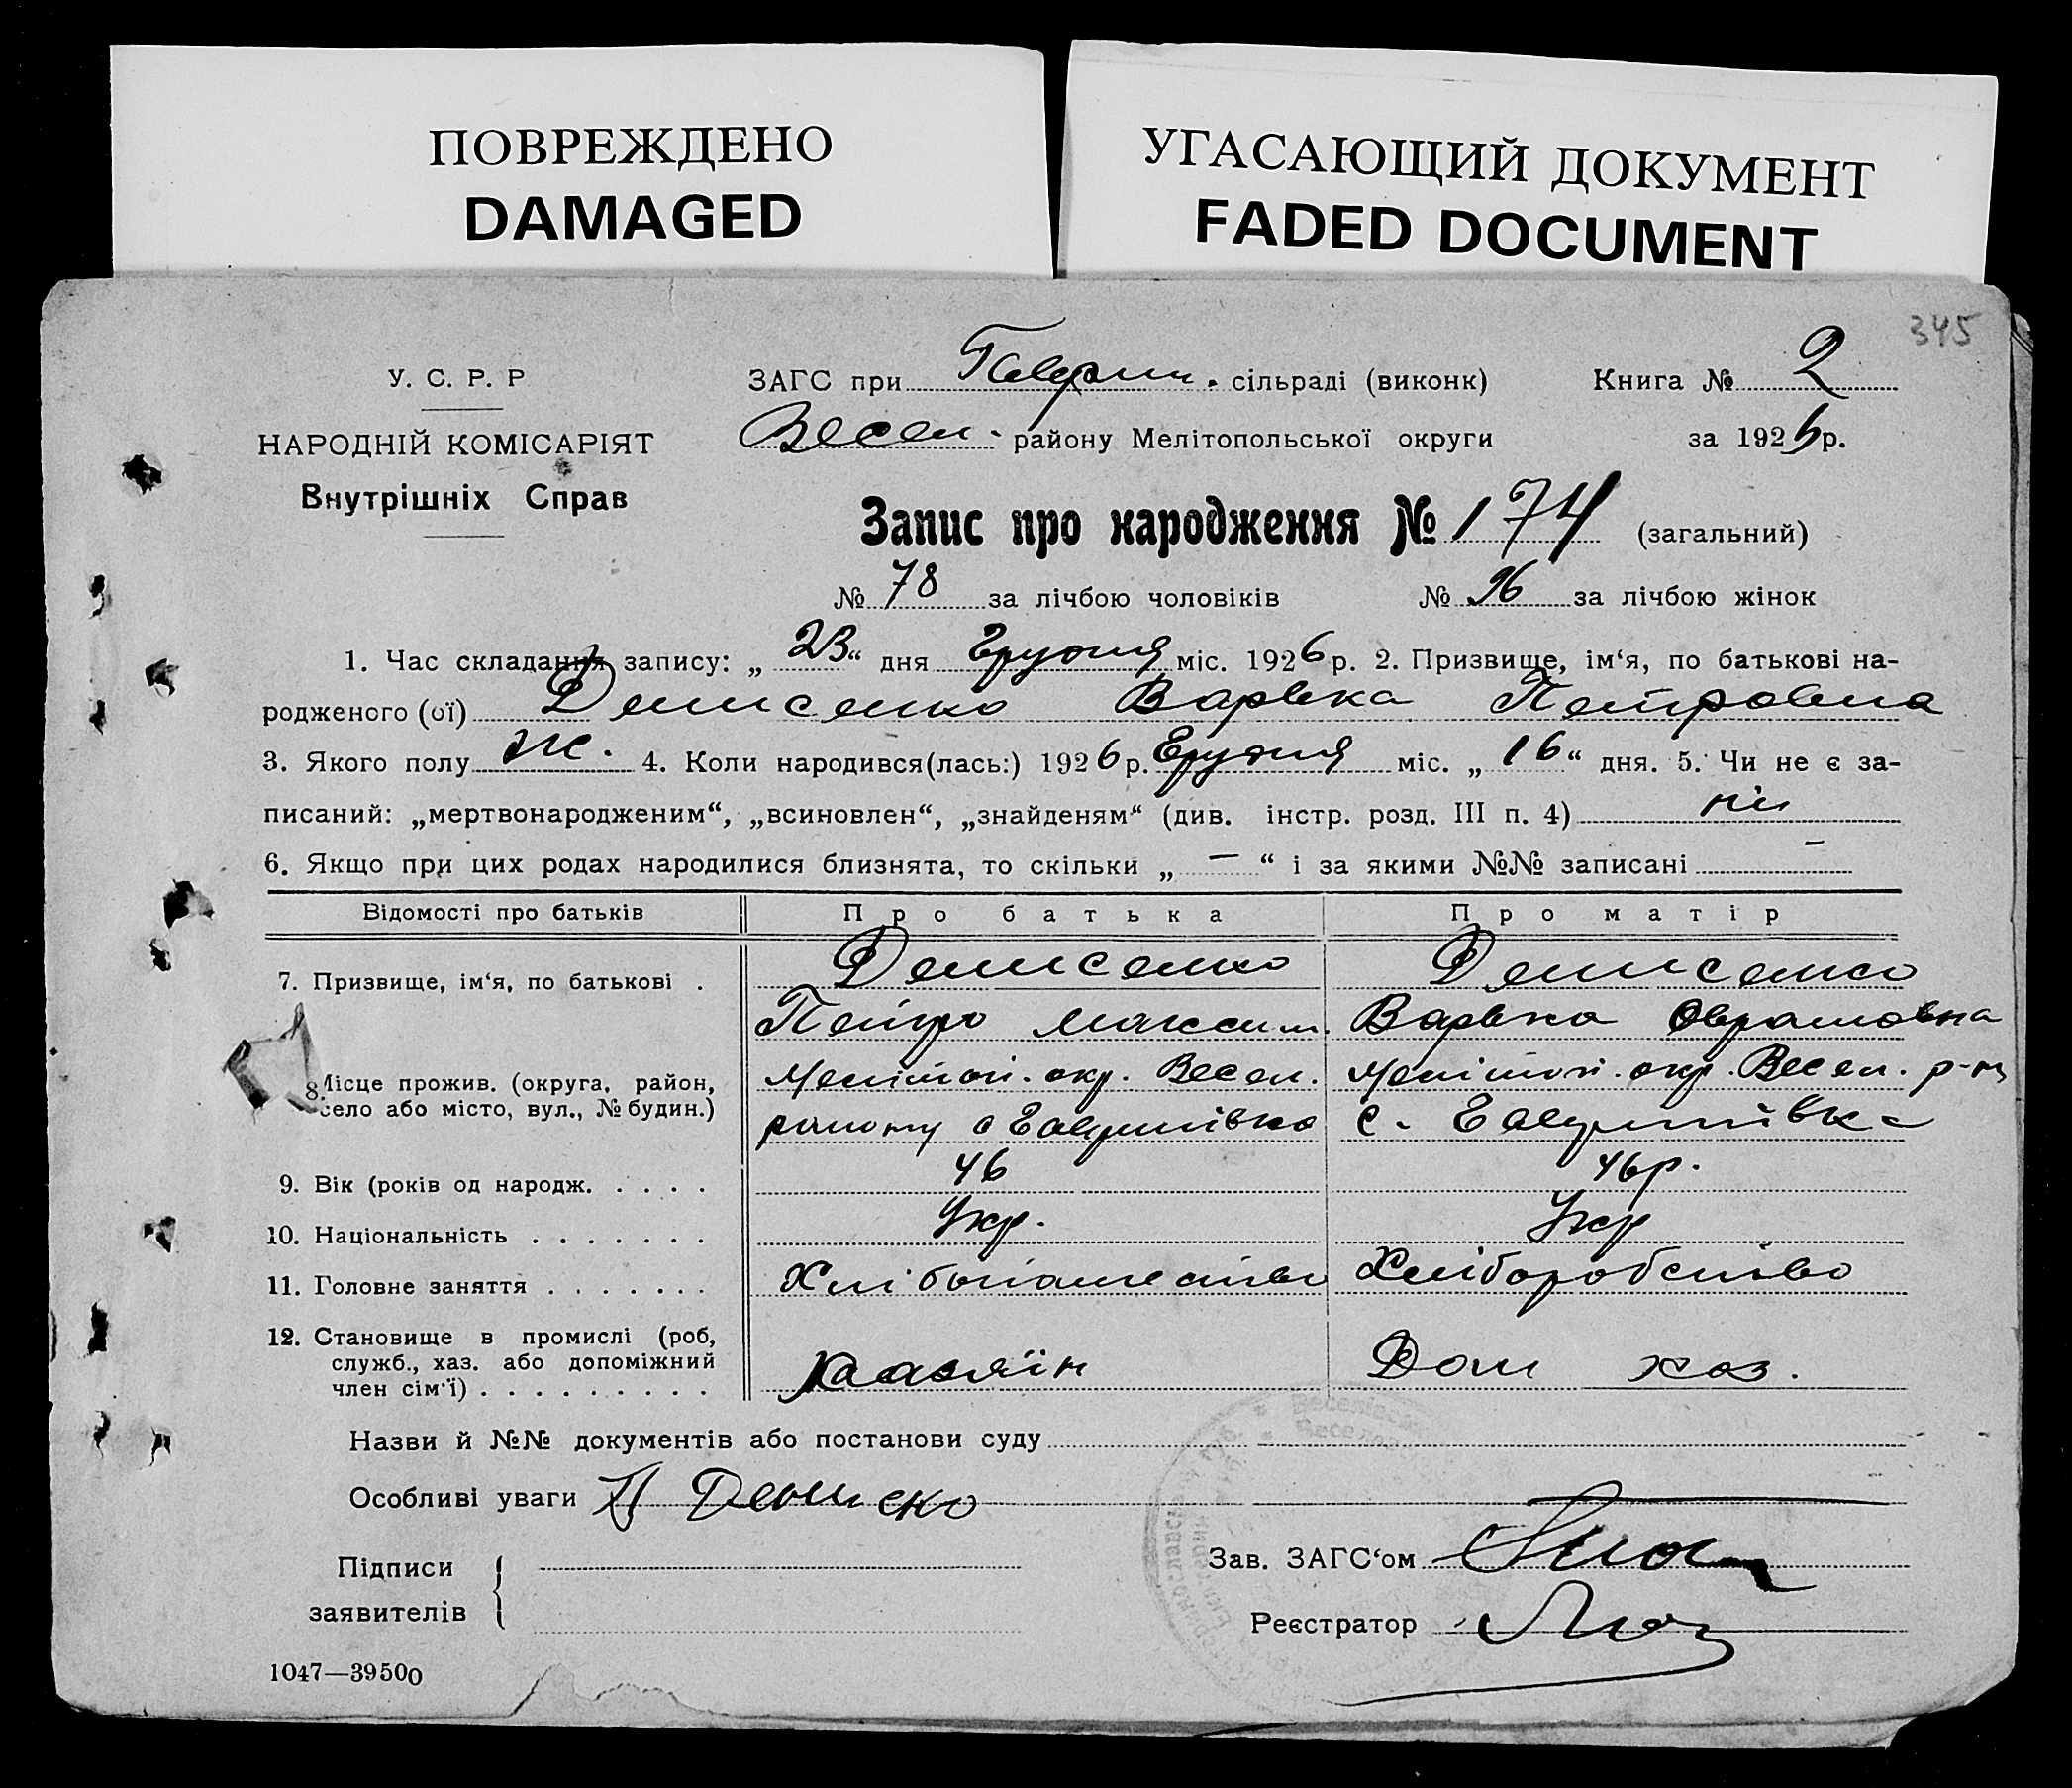 ПОВРЕЖДЕНО
DAMAGED
УГАСАЮЩИЙ ДОКУМЕНТ
FADED DOCUMENT
345
У. С. Р. Р
НАРОДНІЙ КОМІСАРІЯТ
Внутрішніх Справ
ЗАГС при сільраді (виконк)
Книга № 2
Весел. району Мелітопольської округи
за 1926 р.
Запис про народження № 174 (загальний)
№ 78 за лічбою чоловіків № 96 за лічбою жінок
1. Час складання запису: „ 23 “ дня Грудня міс. 1926 р. 2. Призвище, ім‘я, по батькові на-
родженого (ої) Денисенко Варвка Петровна
3. Якого полу Ж. 4. Коли народився(лась:) 1926 р. Грудня міс. „ 16 “ дня. 5. Чи не є за-
писаний: „мертвонародженим“, „всиновлен“, „знайденям“ (див. інстр. розд. III п. 4) ні
6. Якщо при цих родах народилися близнята, то скільки „ — “ і за якими №№ записані —
Відомості про батьків Про батька Про матір
7. Призвище, ім‘я, по батькові . Денисенко Денисенко
Петро Максим. Варвка Овромовна
8. Місце прожив. (округа, район, Мелітоп. окр. Весел. Мелітоп. окр. Весел. р-ну
село або місто, вул., № будин.) району с с.
9. Вік (років од народж. . . . . 46 46 р.
10. Національність . . . . . . . Укр. Укр
11. Головне заняття . . . . . . . Хліборобство
12. Становище в промислі (роб,
служб., хаз. або допоміжний Хазяїн Дом хаз.
член сім‘ї) . . . . . . . . .
Назви й №№ документів або постанови суду
Особливі уваги П Денисенко
Підписи
заявителів
Зав. ЗАГС‘ом
Реєстратор
1047—39500